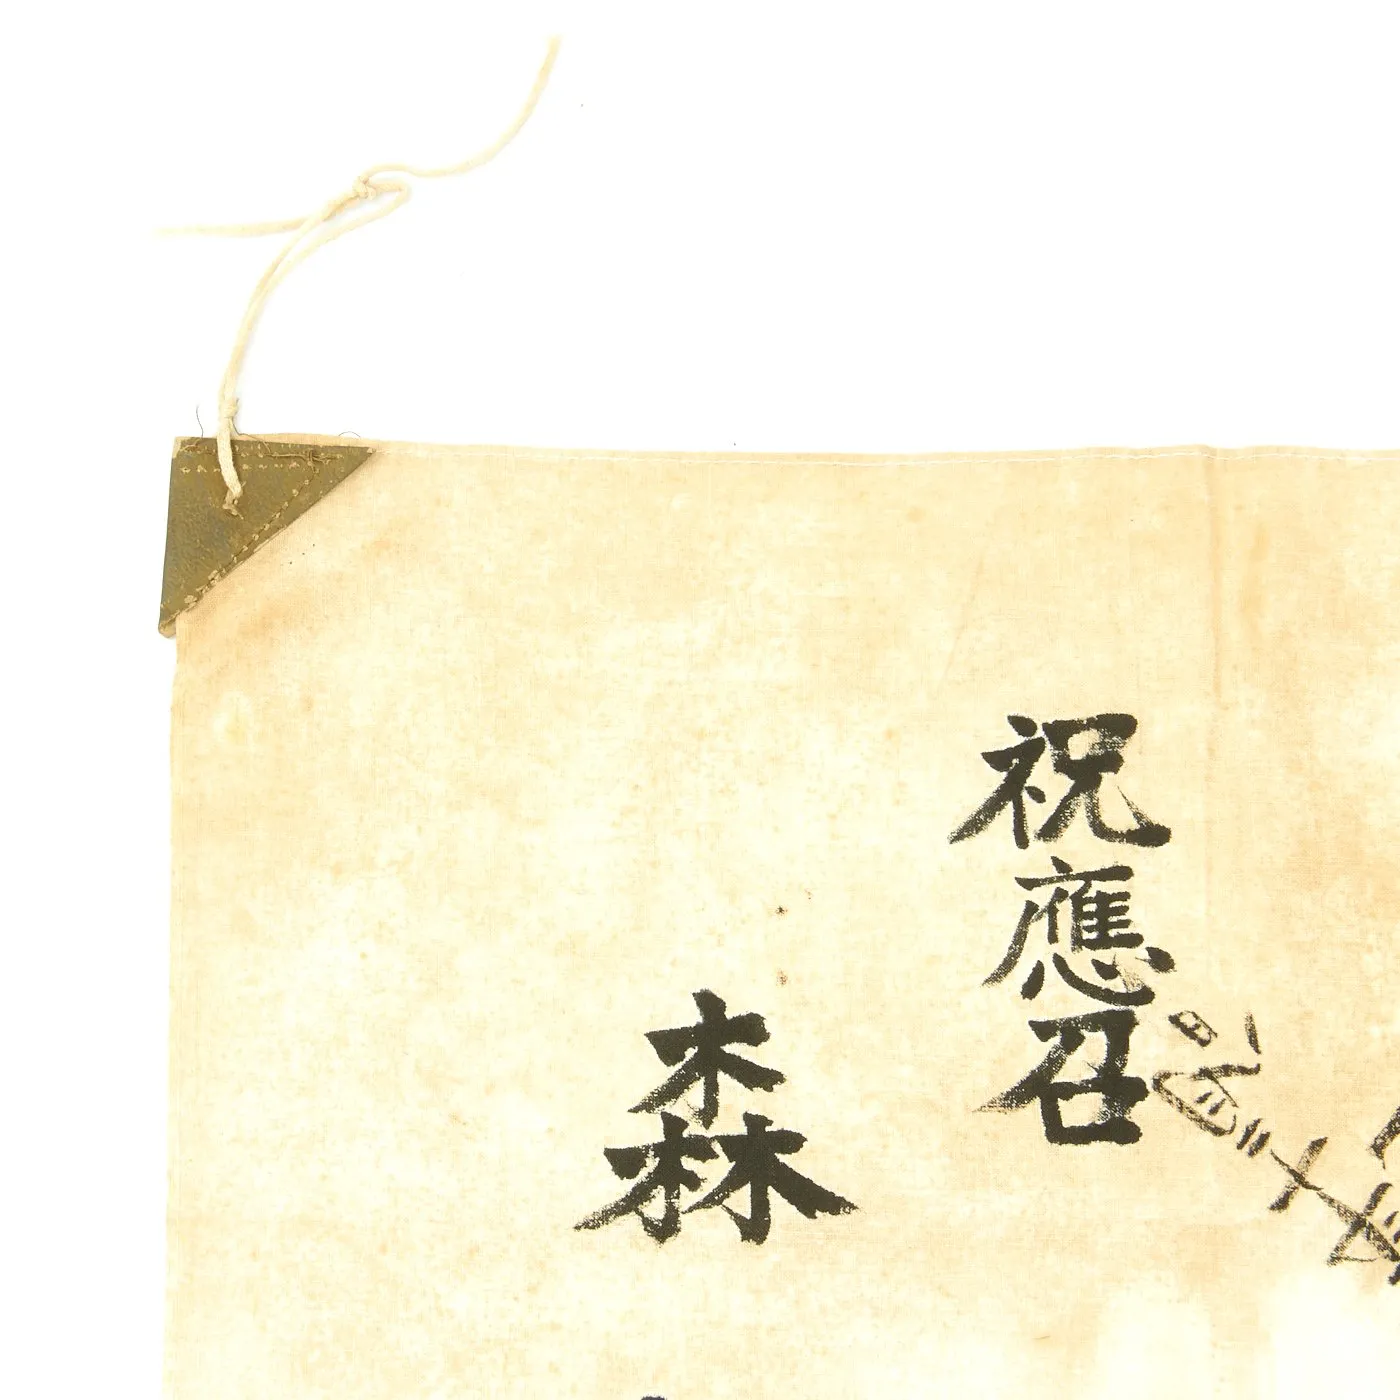 祝應召
森